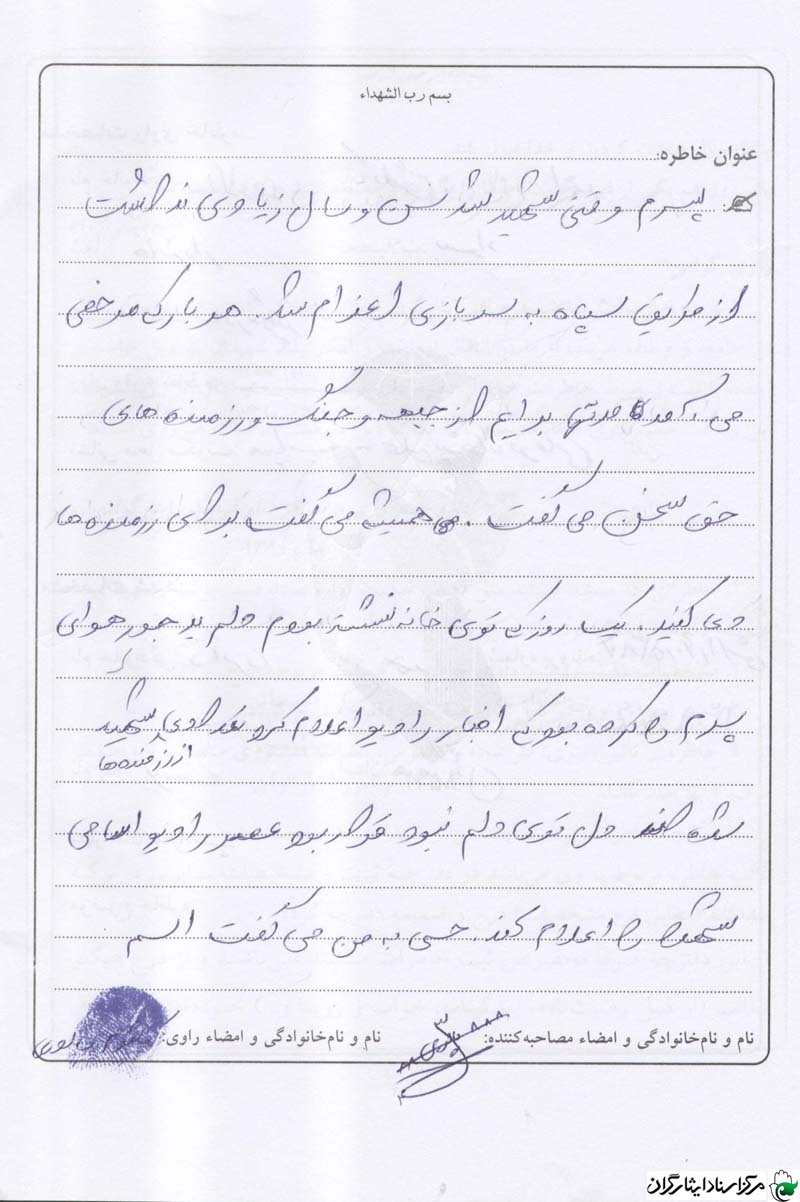 بسم رب الشهداء
عنوان خاطره:
پسرم وقتی شهید شد سن و سال زیادی نداشت
از طریق سپاه به سربازی اعزام شد. هر بار که مرخصی
می آمد مدتها برایم از جبهه و جنگ و رزمنده های
حق سخن می گفت. همیشه می گفت برای رزمنده ها
دعا کنید. یک روز که توی خانه نشسته بودم دلم بدجور هوای
پسرم را کرده بود که اخبار رادیو اعلام کرد تعدادی شهید
از رزمنده ها
شده اند دل توی دلم نبود قرار بود عصر رادیو اسامی
شهدا را اعلام کند. حسی به من می گفت اسم
نام و نام‌خانوادگی و امضاء مصاحبه‌کننده:
نام و نام‌خانوادگی و امضاء راوی:
مرکز اسناد ایثارگران